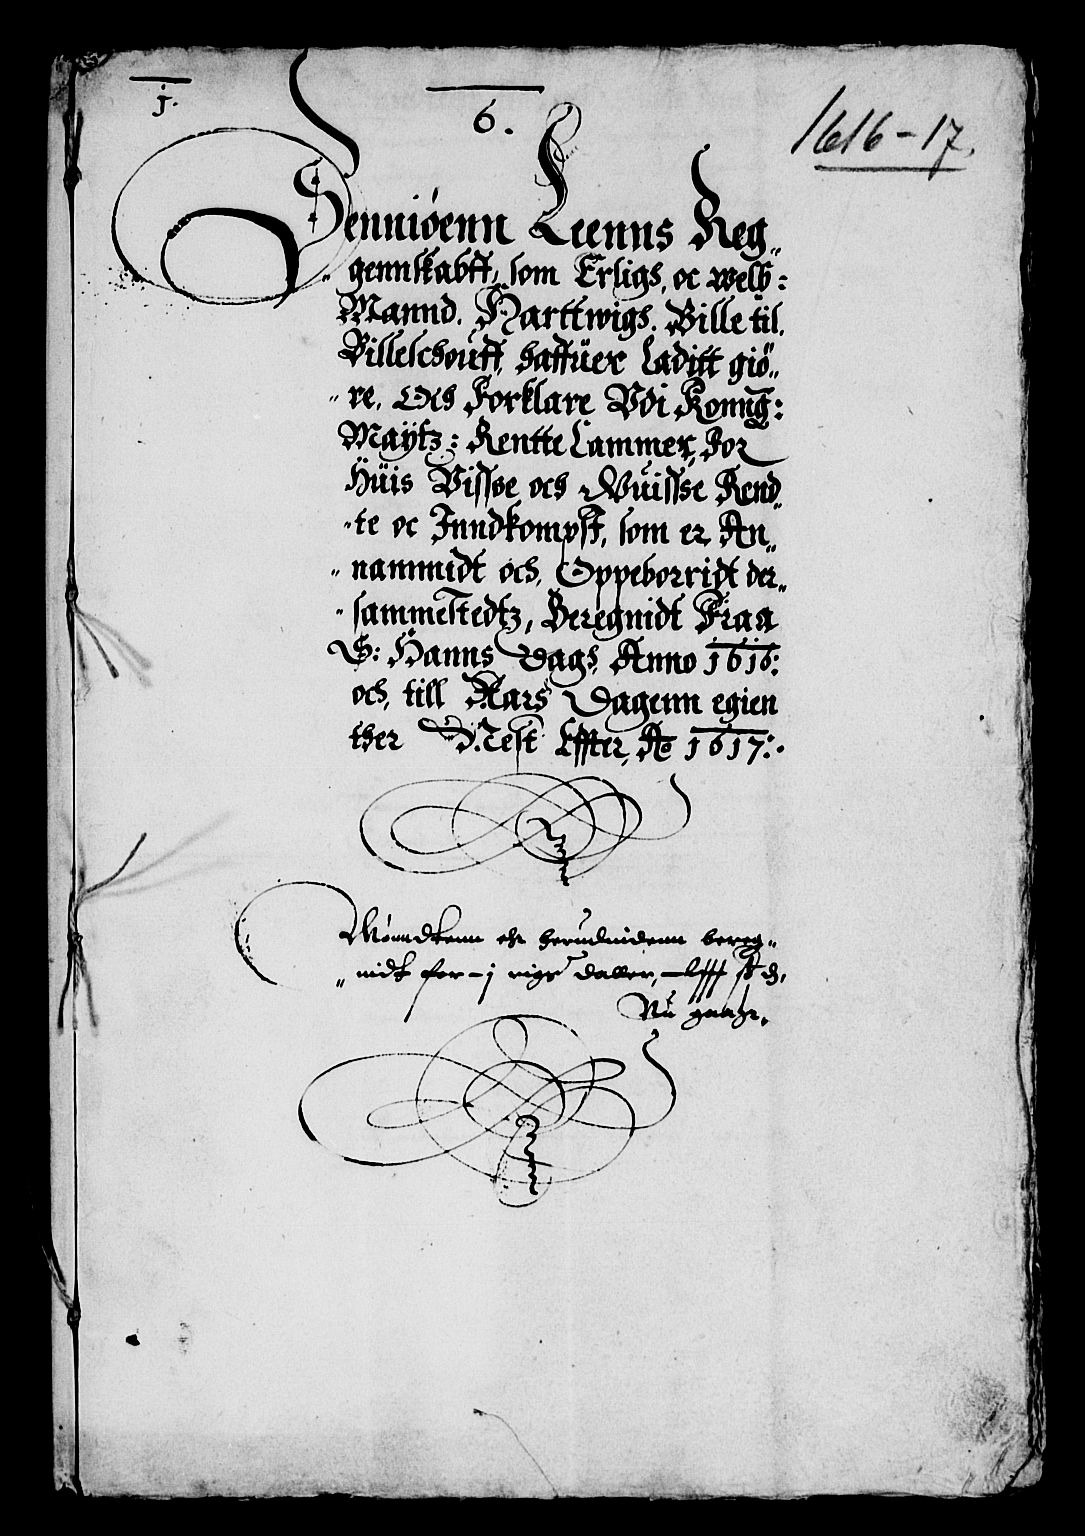 j.
6.
1616-17.
Senniøenn Leenns Reg„
„gennskabtt, som Erligs, oc welb:
Mannd. Harttwigs. Bille til.
Billeschouff, haffuer laditt giø„
„re. Och Forklare Vdi Konng:
Maÿtz: Rentte Cammer, For
Huis Visse och Wuisse Rend„
„te oc Inndkompst, som er An„
„nammidt och, Oppeborridt der„
„sammestedtz, Beregnidt Fraa
S: Hanns Dags, Anno 1616:
och, till Aars Dagenn egien
ther Nest Effter, Ao 1617:
Mønndtenn ehr herudindenn bereg„
„nidt for j rigs daller,
Nu